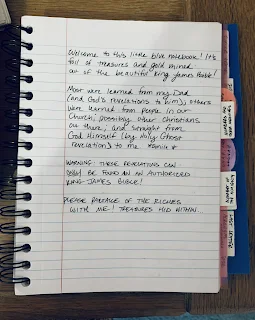 Welcome to this little blue notebook! It's
full of treasures and gold mined
out of the beautiful King James Bible!
Most were learned from my Dad
(and God's revelations to him); others
were learned from people in our
Church, possibly other Christians
out there, and straight from
God Himself (by Holy Ghost
revelation) to me
WARNING: THESE REVELATIONS CAN
ONLY BE FOUND IN AN AUTHORIZED
KING JAMES BIBLE!
PLEASE PARTAKE OF THE RICHES
WITH ME! TREASURES HID WITHIN.